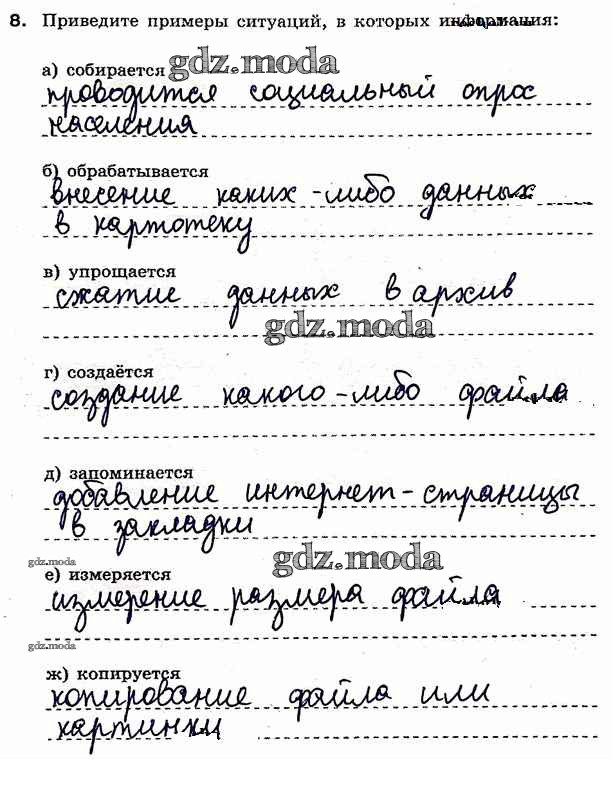 8. Приведите примеры ситуаций, в которых информация:
а) собирается gdz.moda
проводится социальный опрос
населения
б) обрабатывается
внесение каких-либо данных
в картотеку
в) упрощается
сжатие данных в архив
gdz.moda
г) создаётся
создание какого-либо файла
д) запоминается
добавление интернет-страницы
в закладки
gdz.moda
gdz.moda
е) измеряется
измерение размера файла
gdz.moda
ж) копируется
копирование файла или
картинки